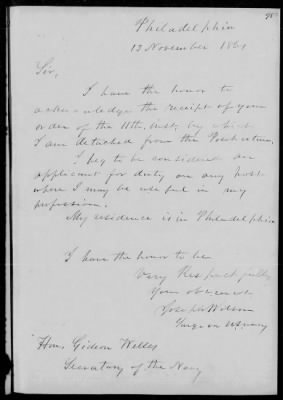 Philadelphia
13 November 1861
Sir,
I have the honor to
acknowledge the receipt of your
order of the 11th, inst, by which
I am detached from the
I beg to be considered an
applicant for duty on any post
where I may be useful in my
profession.
My residence is in Philadelphia
I have the honor to be
Very Respectfully
Your obedient
Joseph Wilson
Surgeon US Navy
Hon, Gideon Welles
Secretary of the Navy